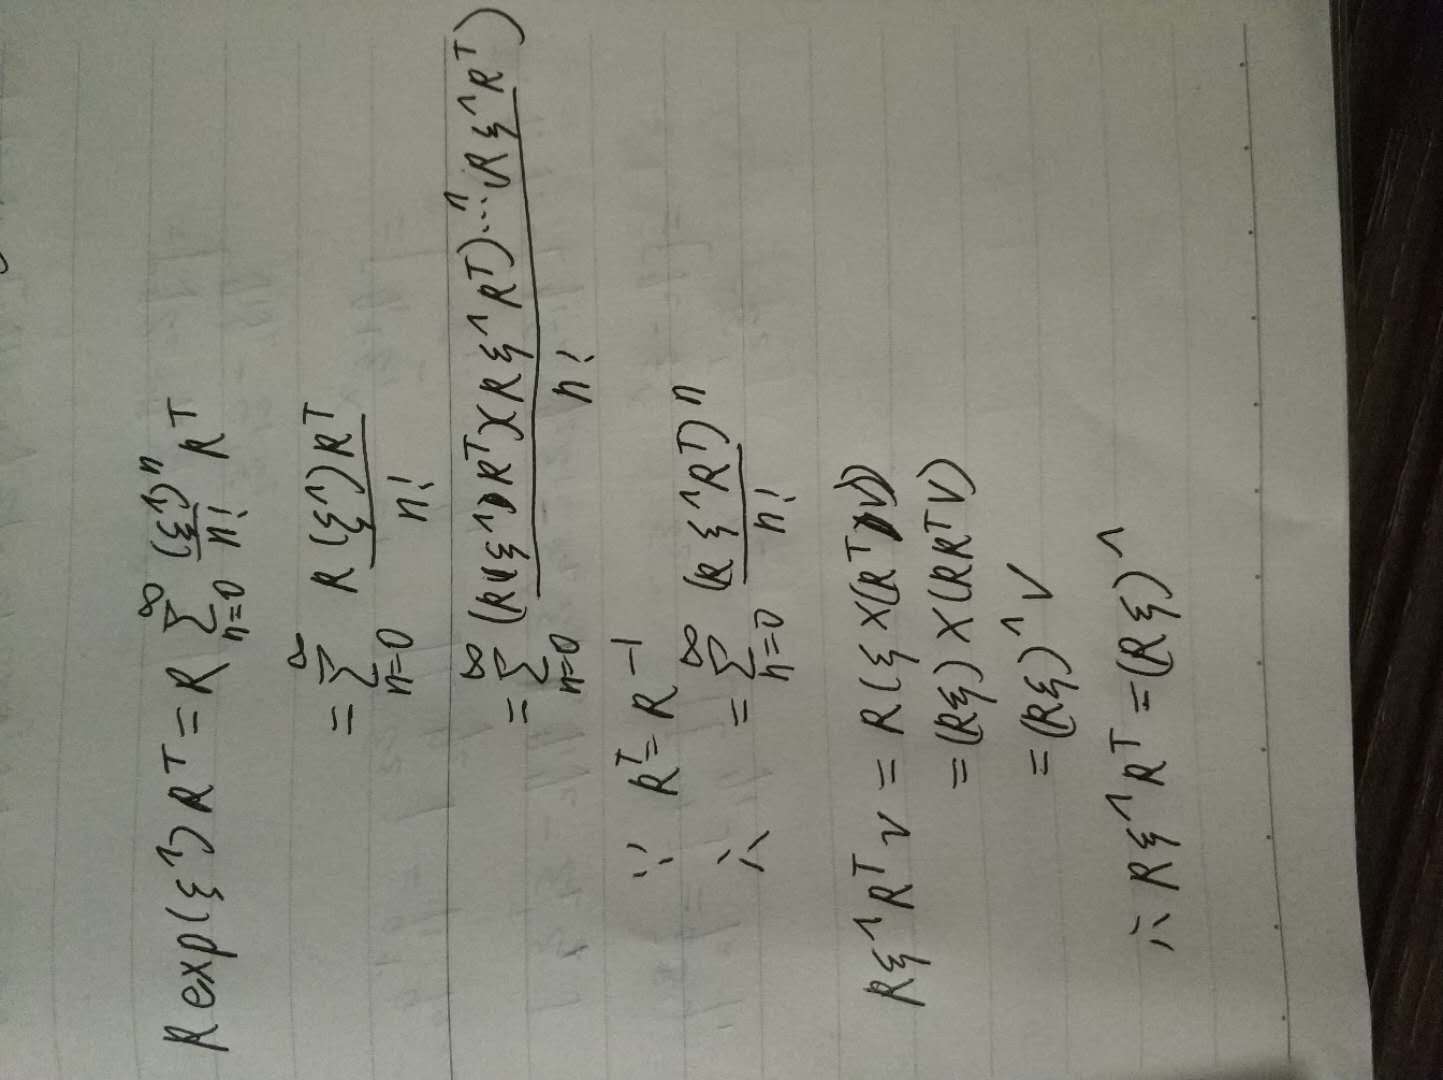 R exp(ξ^)R^T = R ∑_{n=0}^{∞} (ξ^)^n/n! R^T
= ∑_{n=0}^{∞} R(ξ^)R^T/n!
= ∑_{n=0}^{∞} (R(ξ^)R^T)(Rξ^R^T)...^n(Rξ^R^T)/n!
∵ R^T = R^{-1}
∴ = ∑_{n=0}^{∞} (Rξ^R^T)^n/n!
Rξ^R^T v = R(ξ×(R^T v))
= (Rξ)×(RR^T v)
= (Rξ)^v
∴ Rξ^R^T = (Rξ)^